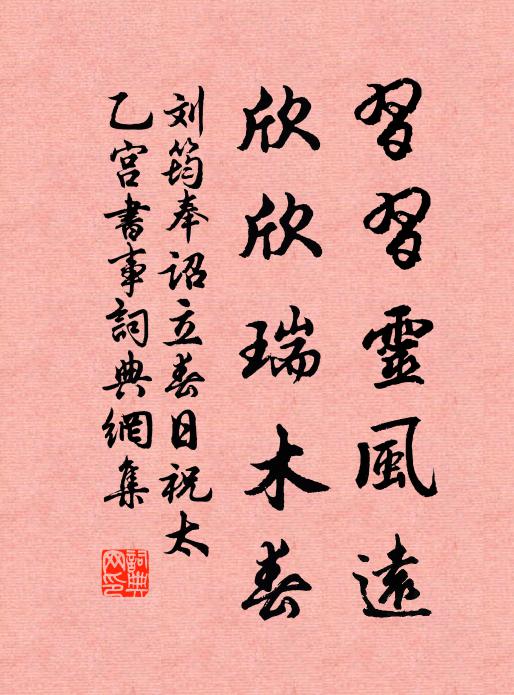 習習靈風遠
欣欣瑞木春
刘筠奉詔立春日祝太
乙宮書事詞典網集
詞典
网印